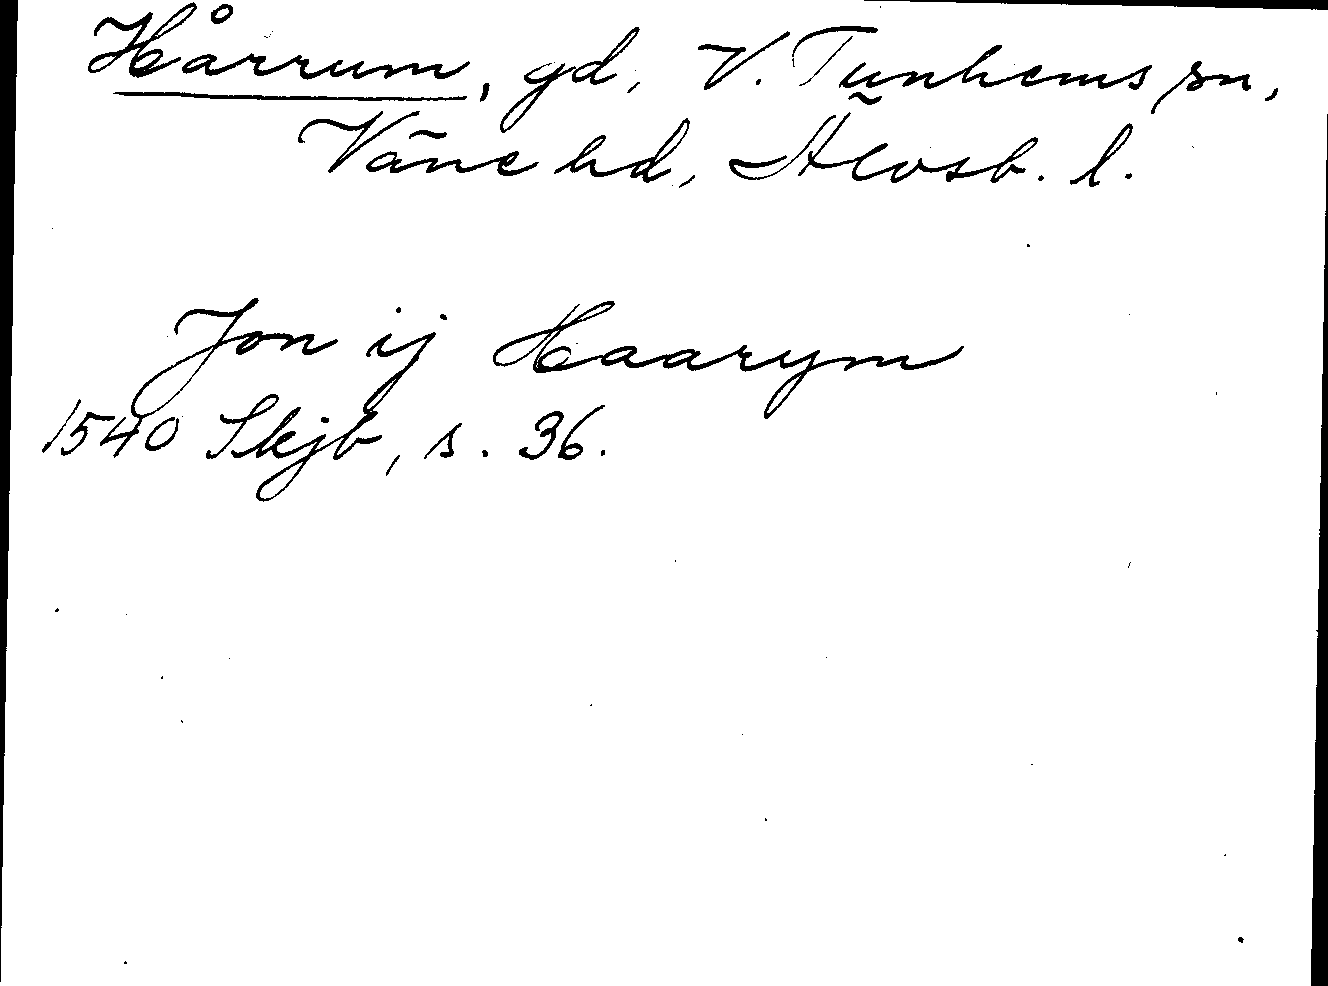 Hårrum, gd, V. Tunhems sn,
Väne hd, Älvsb. l.
Jon ij Haarym
1540 Skjb, s. 36.